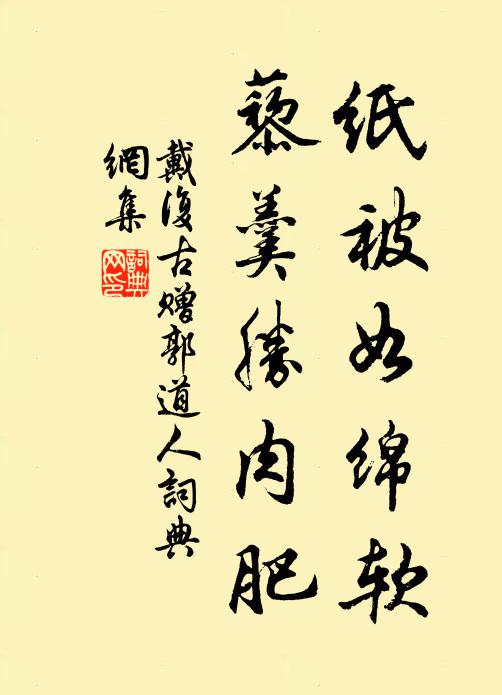 纸被如绵软
藜羹勝肉肥
戴復古赠郭道人詞典
網集
詞典网印